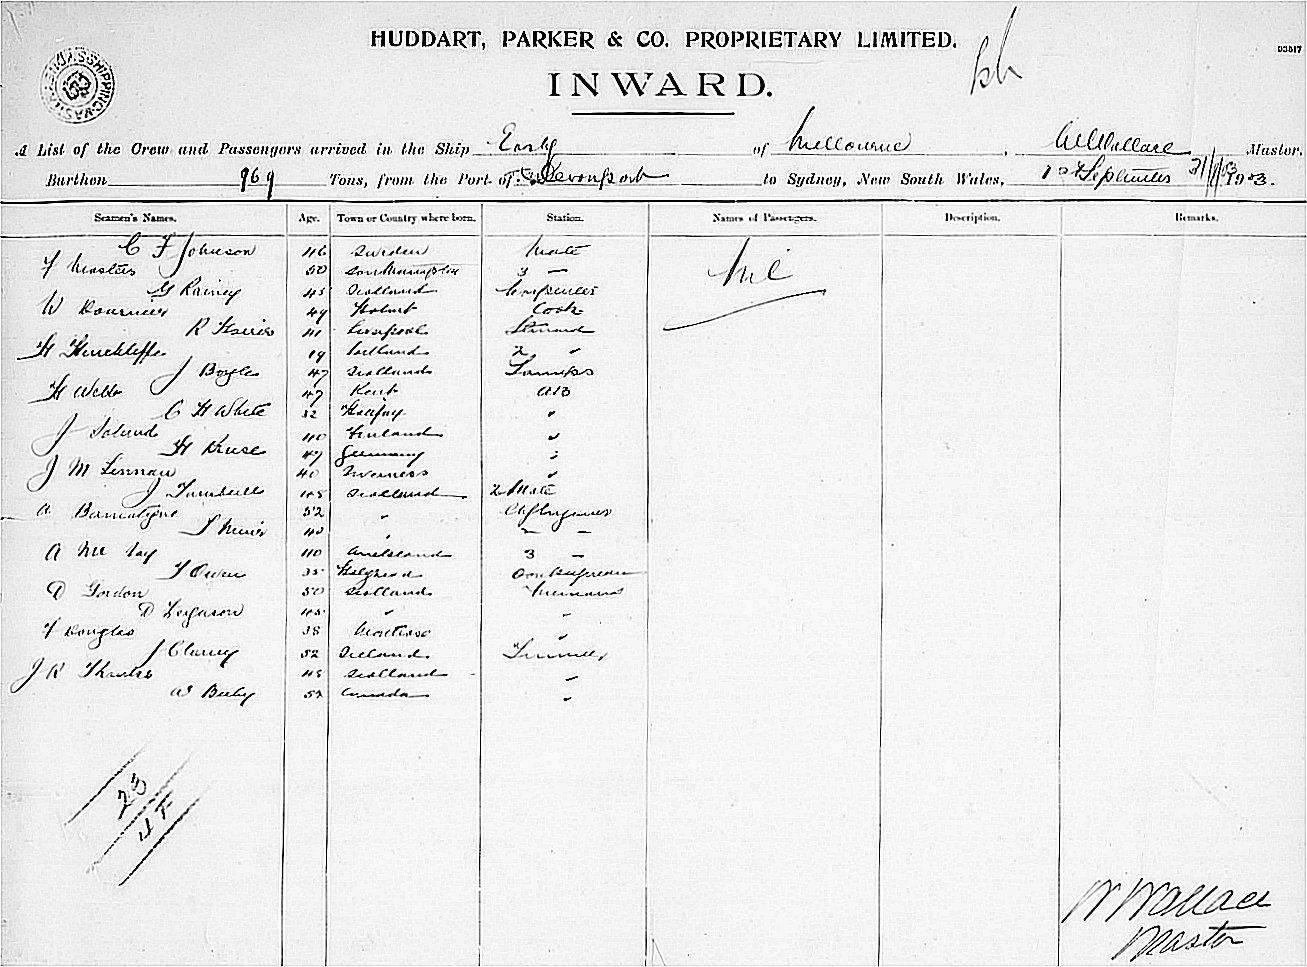 HUDDART, PARKER & CO. PROPRIETARY LIMITED.
93517
INWARD.
A List of the Crew and Passengers arrived in the Ship Easby of Melbourne, W Wallace Master,
Burthen 969 Tons, from the Port of Devonport to Sydney, New South Wales, 1st September 1903.
Seamen's Names. Age. Town or Country where born. Station. Names of Passengers. Description. Remarks.
C F Johnson 46 Sweden Mate Nil
F Masters 50 Southampton 3 "
G Rainey 45 Scotland Carpenter
W 49 Hobart Cook
R Harris 41 Liverpool Steward
H Hinchliffe 19 Portland 2 "
J Boyles 47 Scotland Lamps
H Webb 47 Kent AB
C H White 32 "
J 40 Finland "
H Kruse 47 Germany "
J M Lennan 40 Inverness "
J Turnbull 48 Scotland 2 Mate
A Bannatyne 52 " Ch Engineer
J Muir 40 " 2 "
A Mc Kay 40 Auckland 3 "
F Owen 35 Holyhead Donkeyman
D Gordon 50 Scotland Fireman
D Ferguson 45 " "
F Douglas 38 Montrose "
J Clancy 52 Ireland Trimmer
J R 48 Scotland "
W 52 Canada "
23
W Wallace
Master